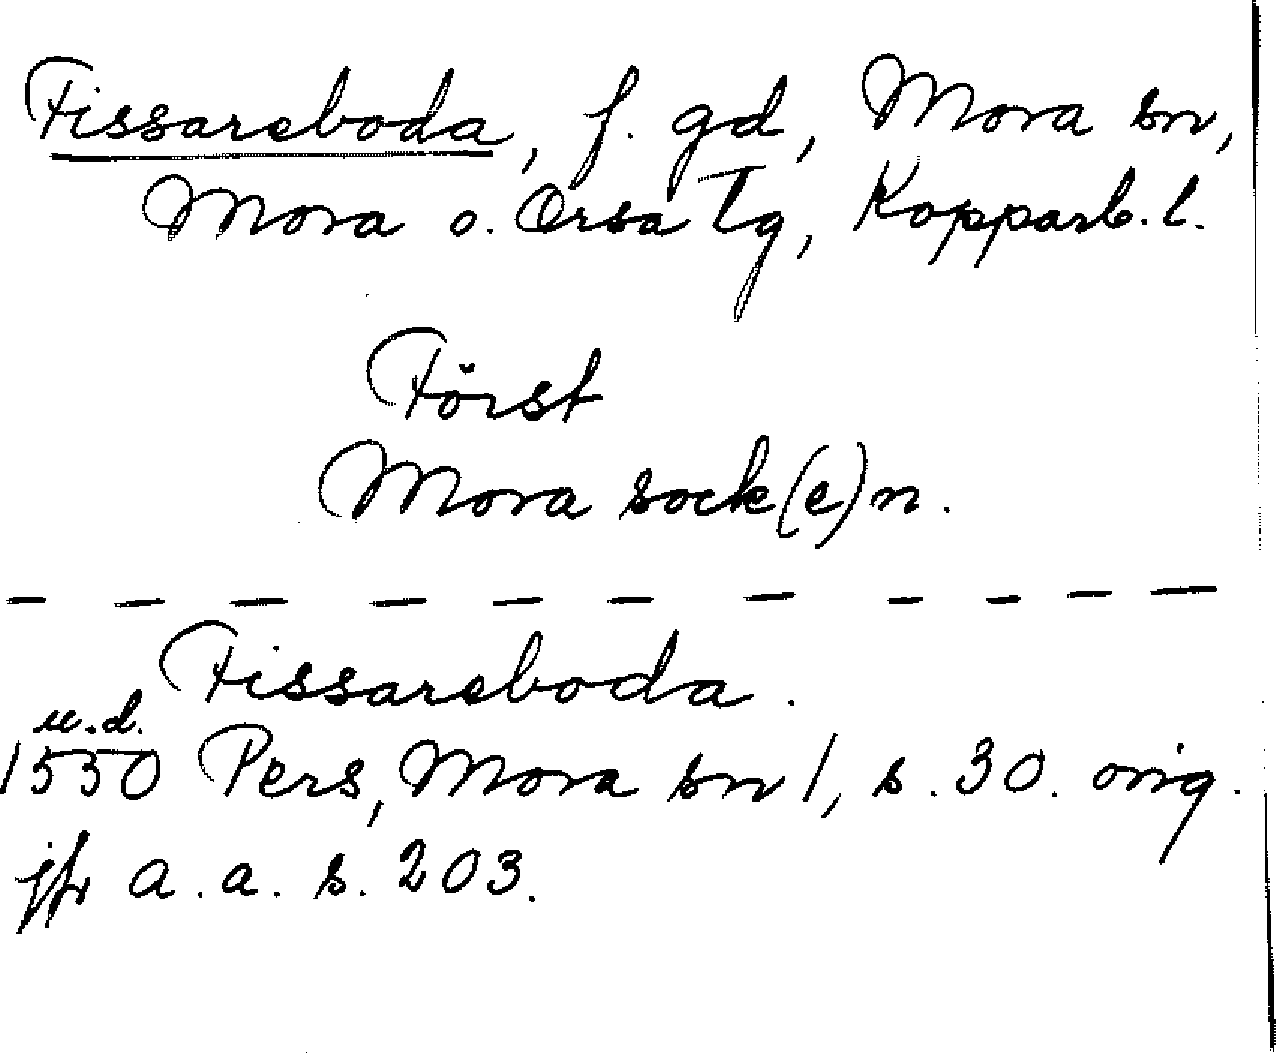 Fissareboda, f. gd, Mora sn,
Mora o. Orsa Tg, Kopparb. l.
Först
Mora sock(e)n.
— — — — — — — — — — —
Fissareboda.
u.d.
1550 Pers, Mora sn 1, s. 30. orig.
jfr a. a. s. 203.